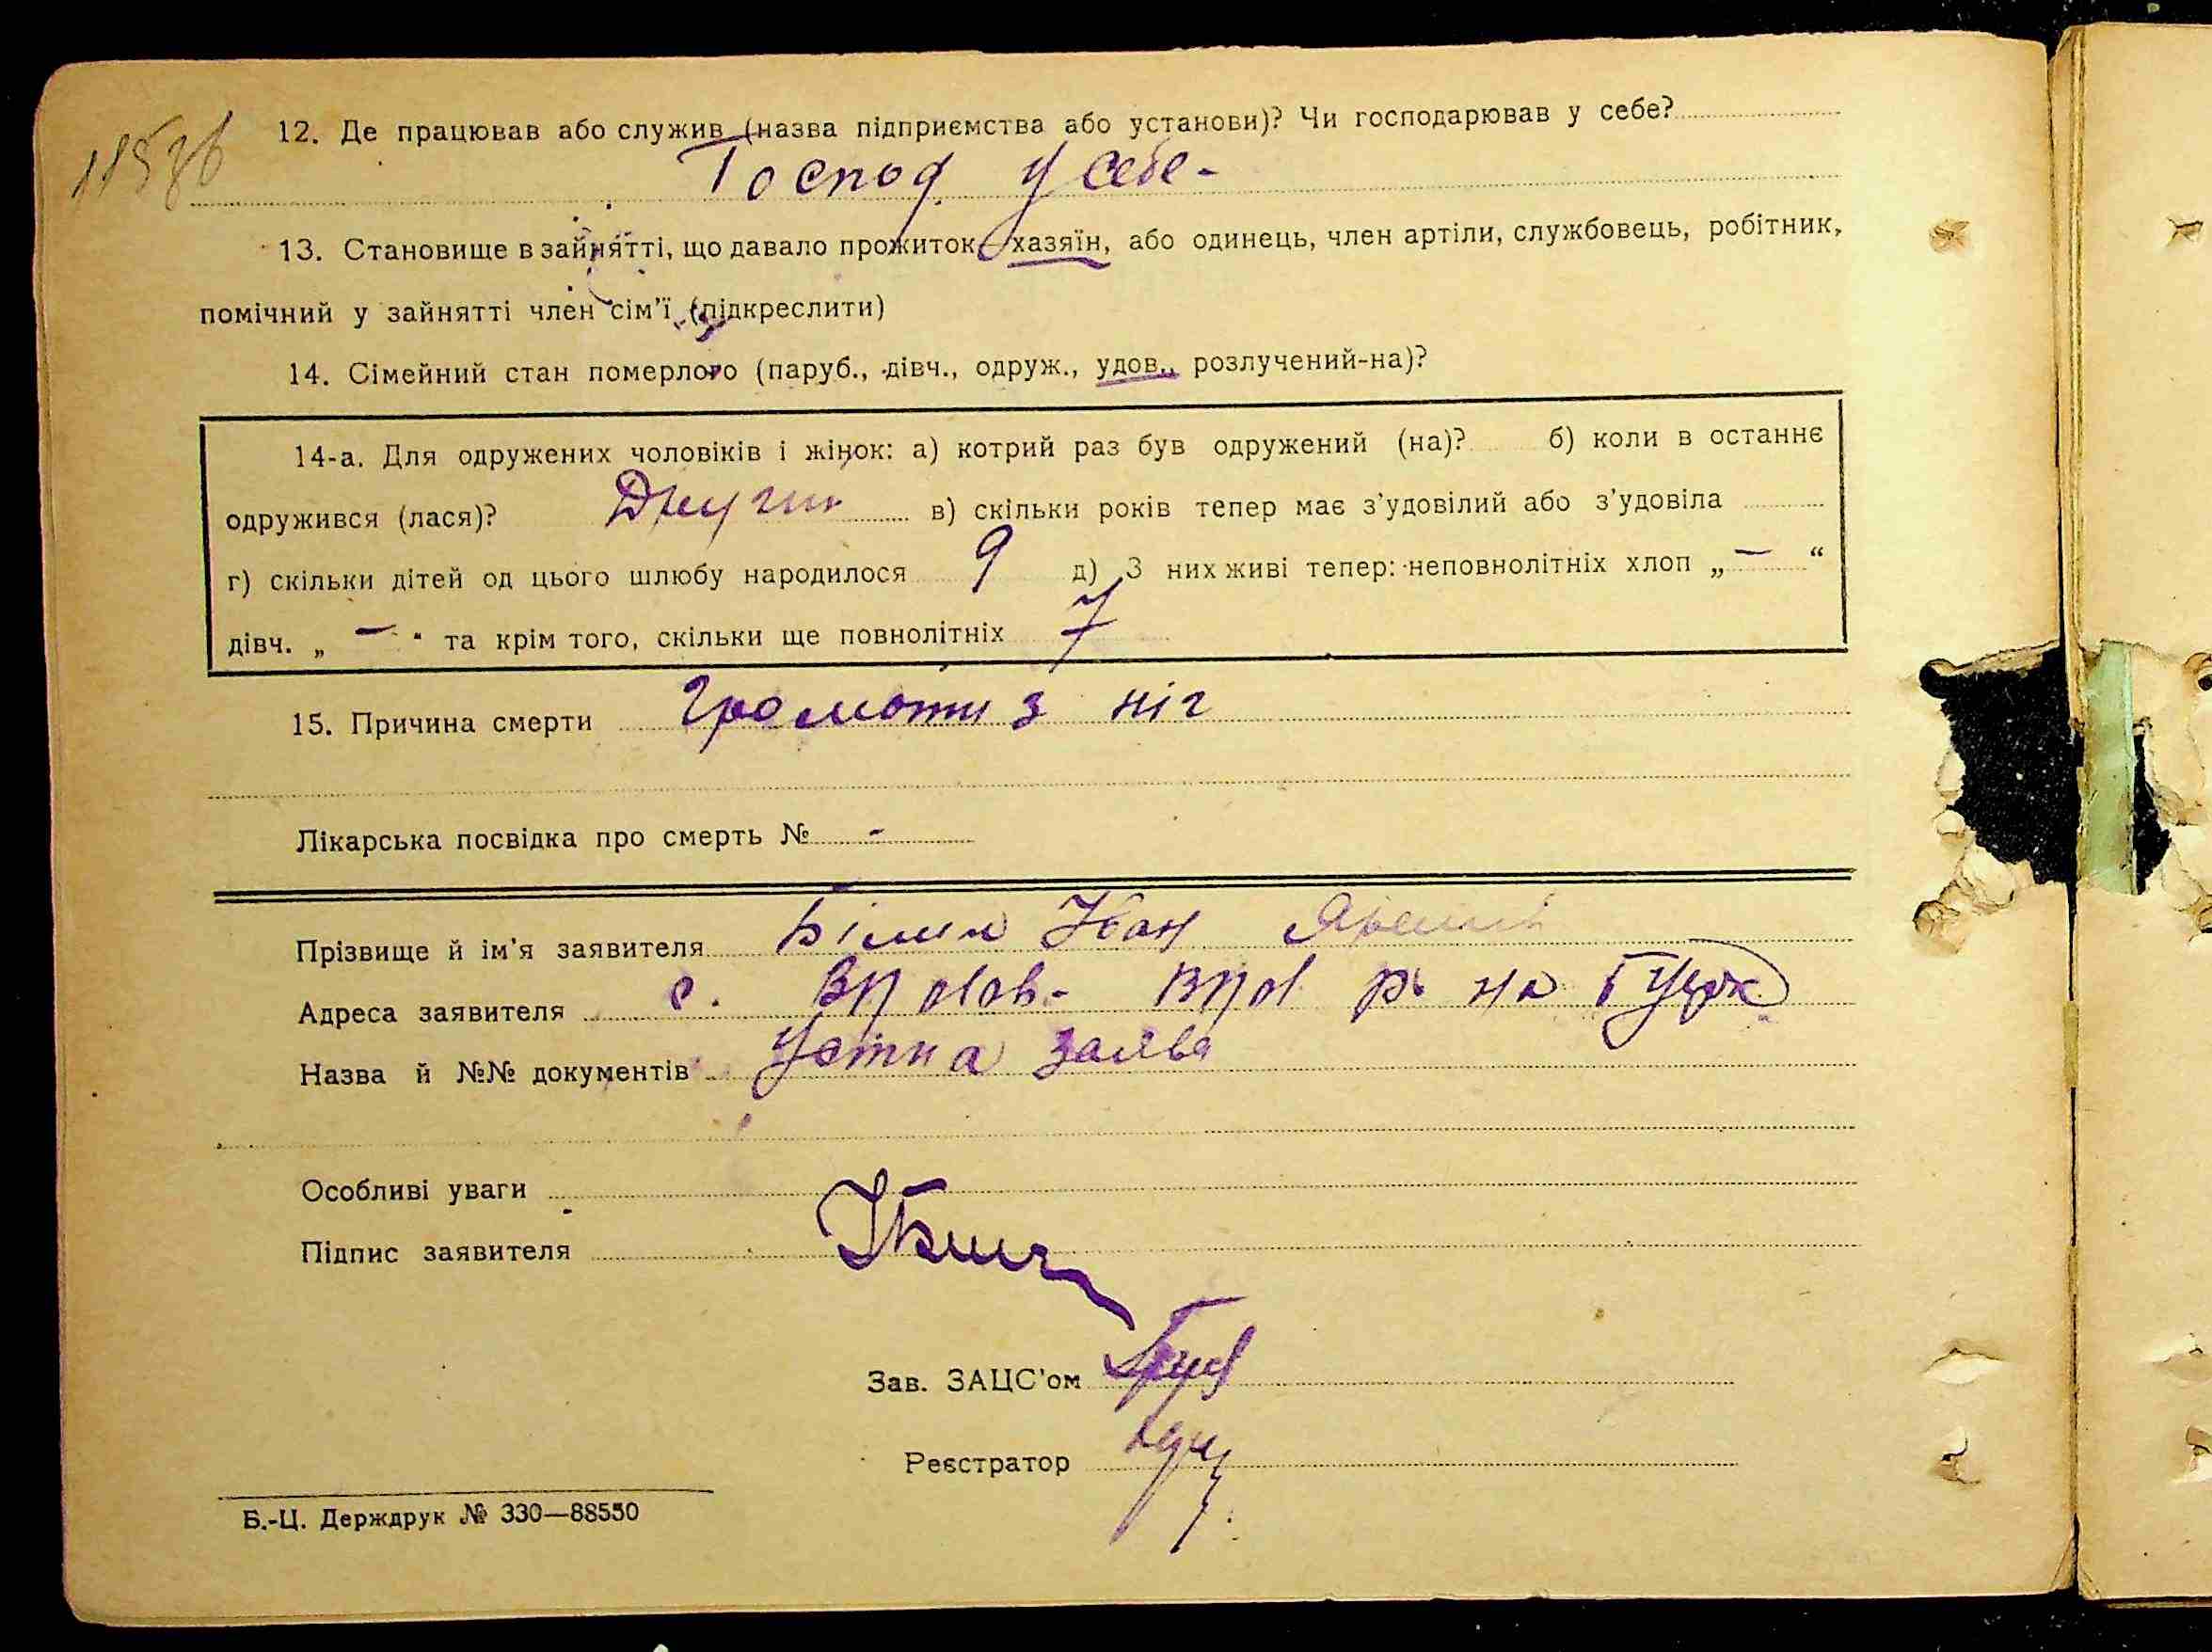 115зв
12. Де працював або служив (назва підприємства або установи)? Чи господарював у себе?
Господ. у себе -
13. Становище в зайнятті, що давало прожиток – хазяїн, або одинець, член артіли, службовець, робітник,
помічний у зайнятті член сім'ї (підкреслити)
14. Сімейний стан померлого (паруб., дівч., одруж., удов., розлучений-на)?
14-а. Для одружених чоловіків і жінок: а) котрий раз був одружений (на)? б) коли в останнє
одружився (лася)? в) скільки років тепер має з'удовілий або з'удовіла
г) скільки дітей од цього шлюбу народилося 9 д) З них живі тепер: неповнолітніх хлоп „ — “
дівч. „ — “ та крім того, скільки ще повнолітніх 7
15. Причина смерти ніг
Лікарська посвідка про смерть № -
Прізвище й ім'я заявителя Білик Іван
Адреса заявителя с.
Назва й №№ документів Устна заява
Особливі уваги
Підпис заявителя
Зав. ЗАЦС'ом
Реєстратор
Б.-Ц. Держдрук № 330—88550